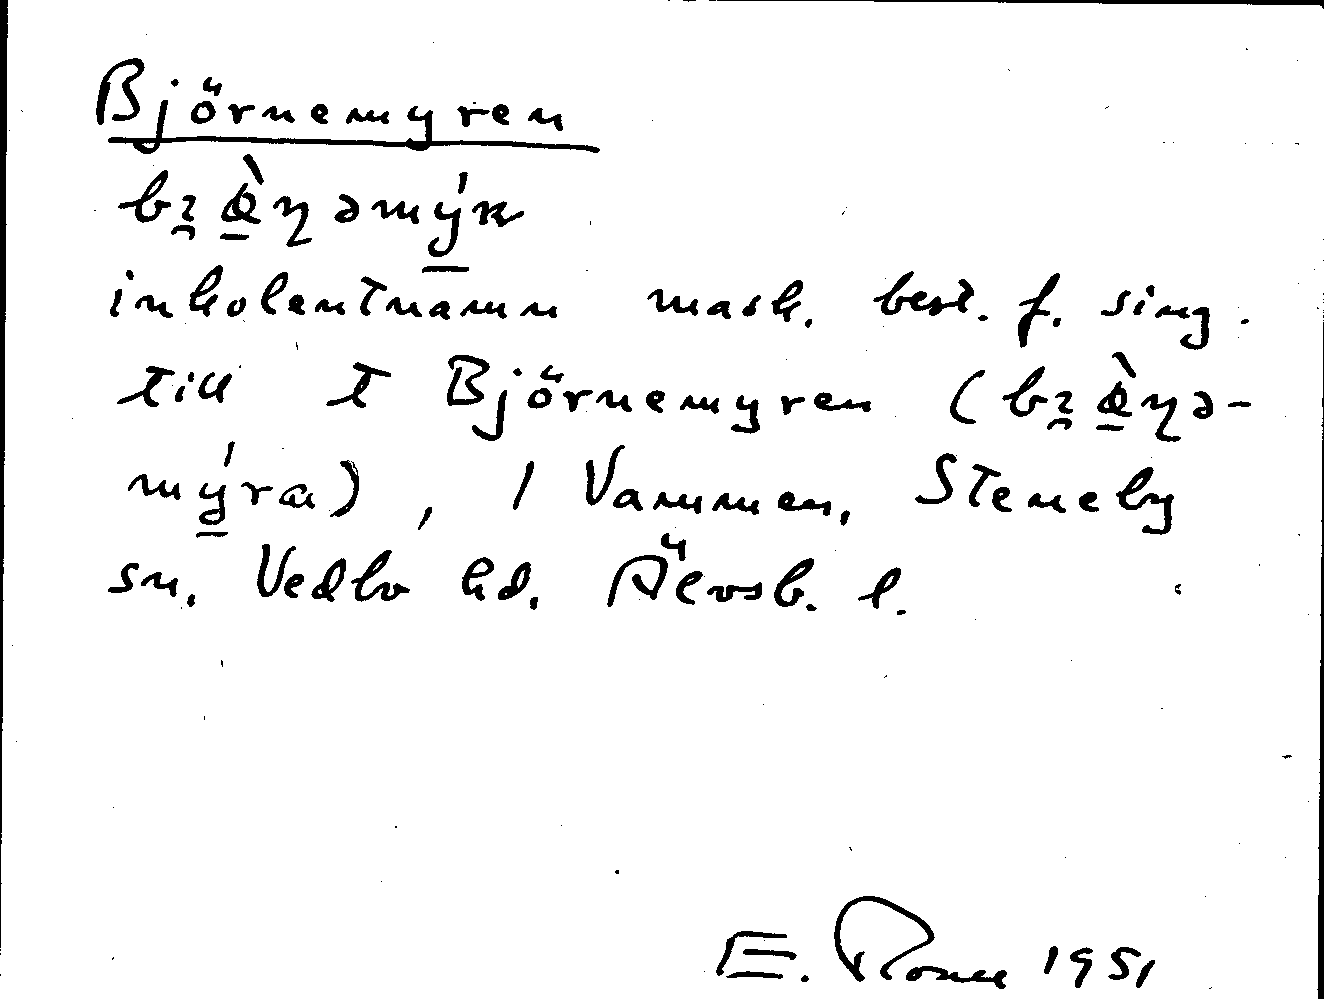 Björnemyren
bɿœ̀ɳəmýʀ
inkolentnamn mask. best. f. sing.
till t Björnemyren (bɿœ̀ɳə-
mýra), 1 Vammen, Steneby
sn, Vedbo hd. Älvsb. l.
E. 1951